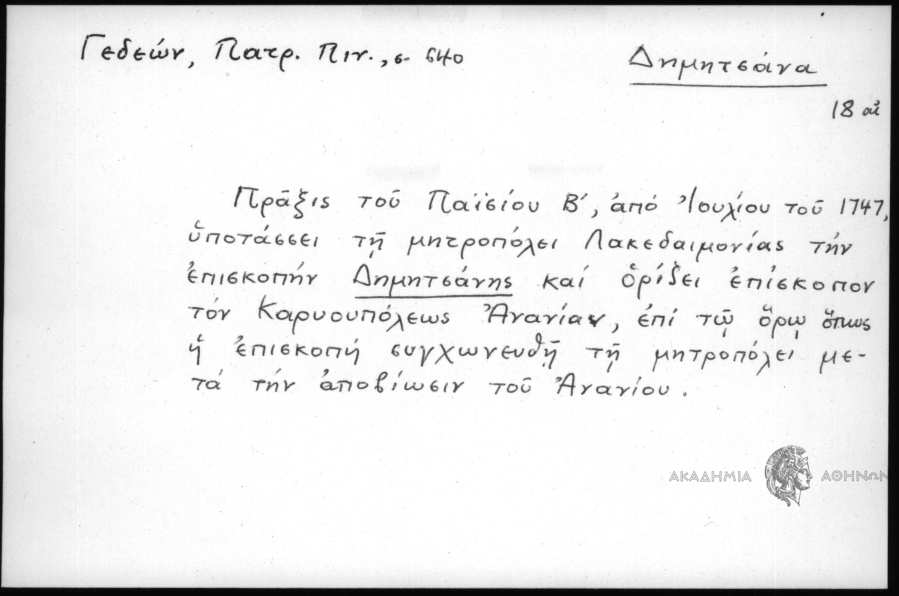 Γεδεών, Πατρ. Πιν., σ. 640
Δημητσάνα
18 αἰ
Πρᾶξις τοῦ Παϊσίου Β', ἀπό Ἰουλίου τοῦ 1747,
ὑποτάσσει τῇ μητροπόλει Λακεδαιμονίας τήν
ἐπισκοπήν Δημητσάνης καί ὁρίζει ἐπίσκοπον
τόν Καρυουπόλεως Ἀνανίαν, ἐπί τῷ ὅρῳ ὅπως
ἡ ἐπισκοπή συγχωνευθῇ τῇ μητροπόλει με-
τά τήν ἀποβίωσιν τοῦ Ἀνανίου.
ΑΚΑΔΗΜΙΑ ΑΘΗΝΩΝ